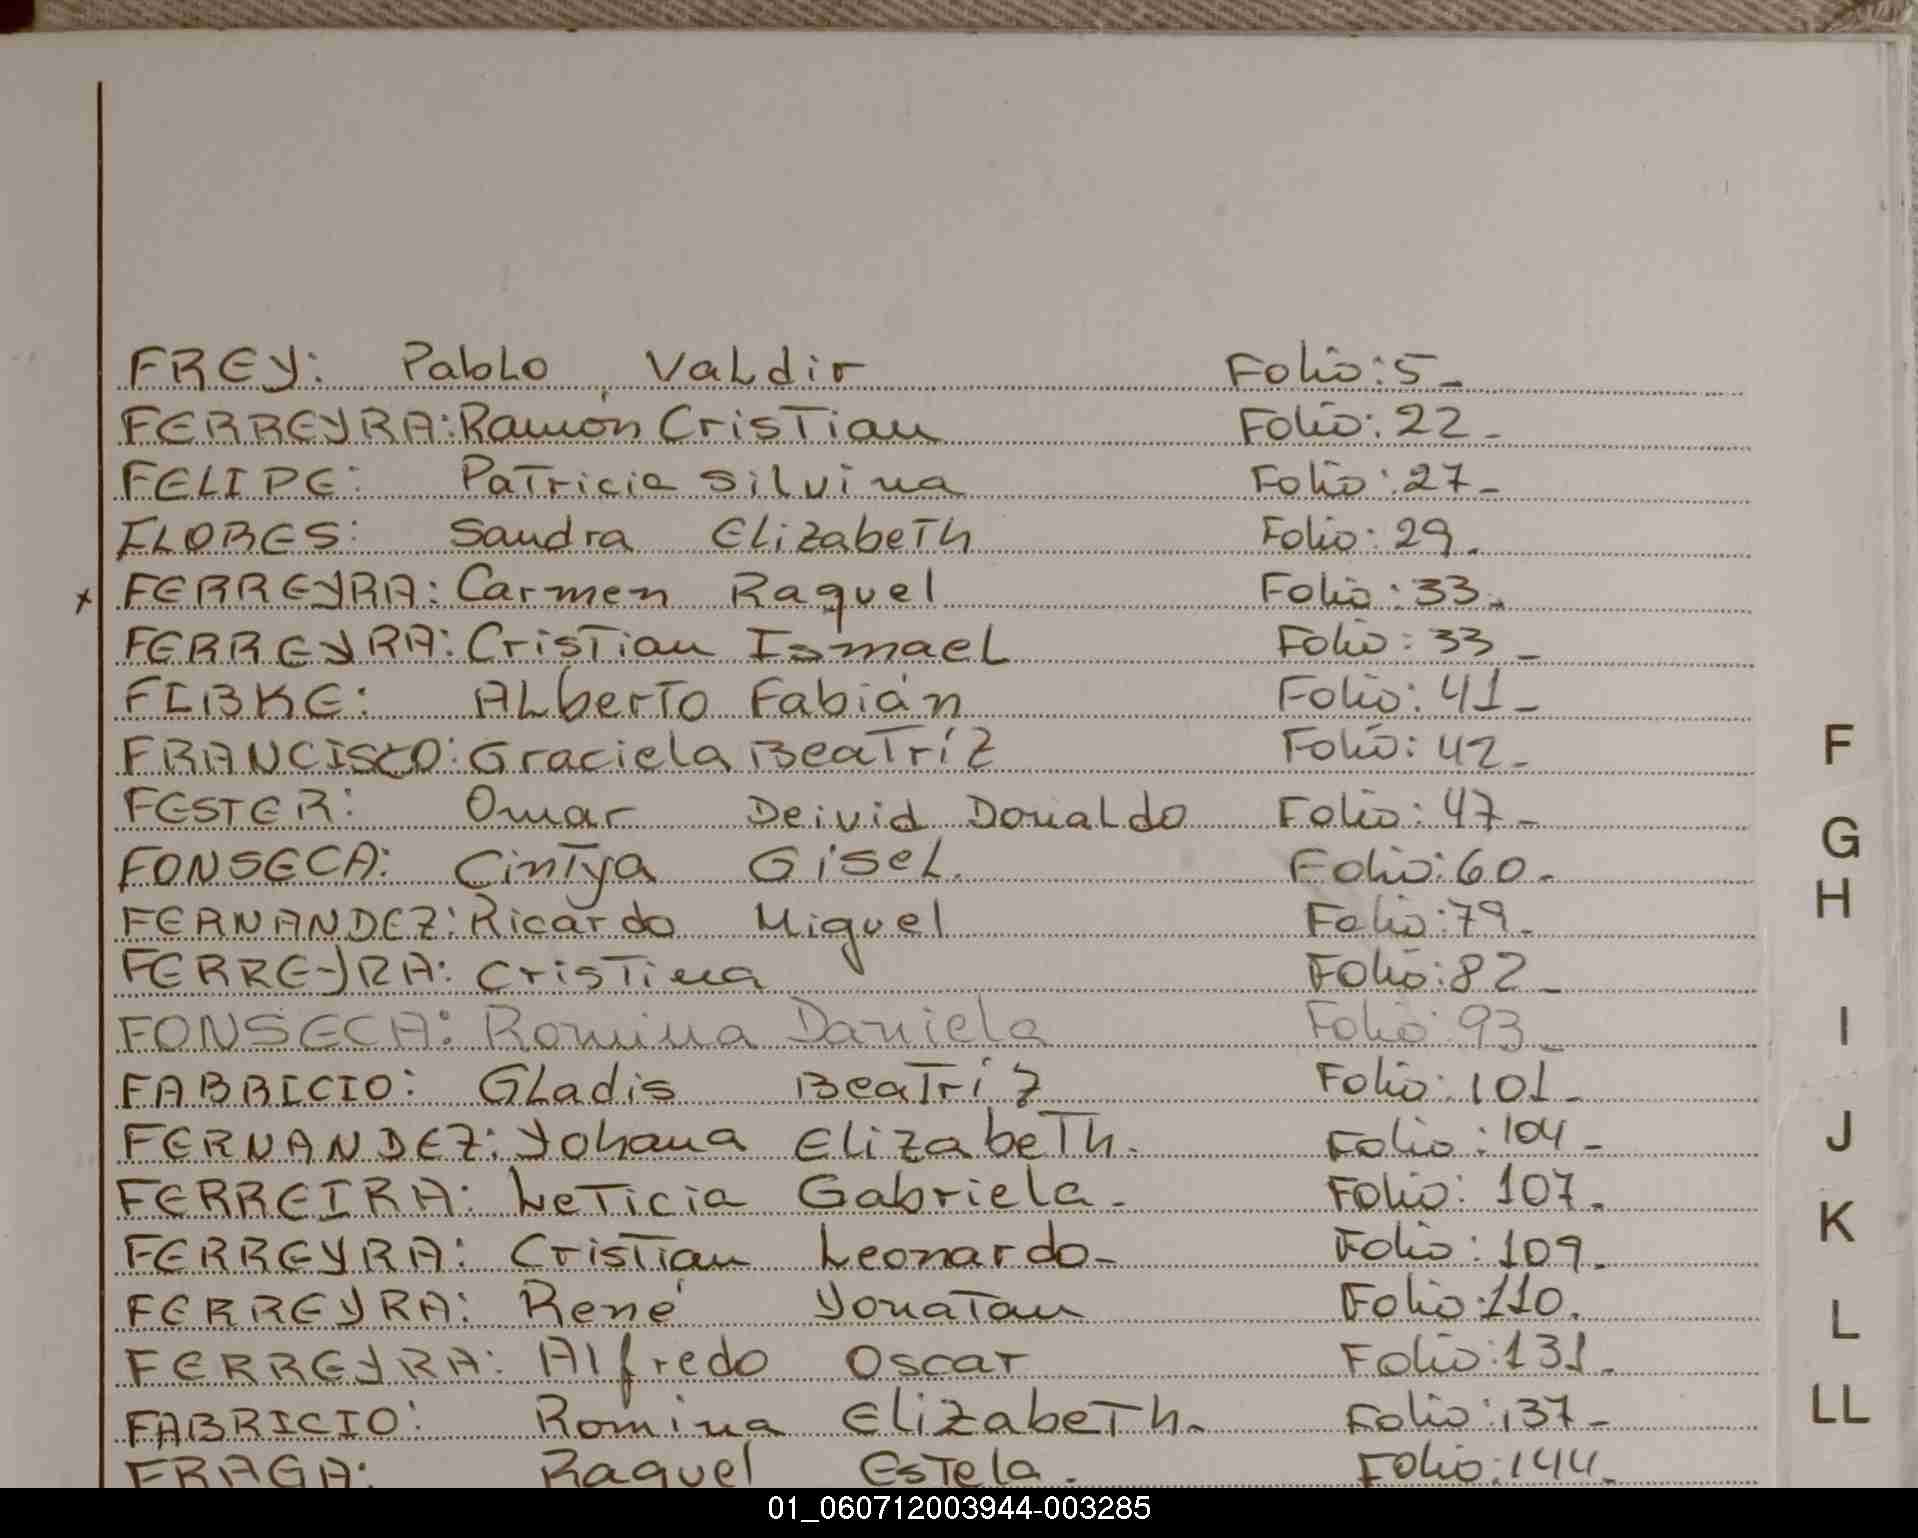 FREY: Pablo Valdir Folio: 5_
FERREYRA: Ramón Cristian Folio: 22_
FELIPE: Patricia Silvina Folio: 27_
FLORES: Sandra Elizabeth Folio: 29.
x FERREYRA: Carmen Raquel Folio: 33_
FERREYRA: Cristian Ismael Folio: 33_
FIBKE: Alberto Fabián Folio: 41_
FRANCISCO: Graciela Beatríz Folio: 42_
FESTER: Omar Deivid Donaldo Folio: 47_
FONSECA: Cintya Gisel. Folio: 60_
FERNANDEZ: Ricardo Miguel Folio: 79_
FERREYRA: Cristina Folio: 82_
FONSECA: Romina Daniela Folio: 93_
FABRICIO: Gladis Beatríz Folio: 101_
FERNANDEZ: Yohana Elizabeth. Folio: 104_
FERREIRA: Leticia Gabriela_ Folio: 107_
FERREYRA: Cristian Leonardo_ Folio: 109_
FERREYRA: René Yonatan Folio: 110.
FERREYRA: Alfredo Oscar Folio: 131_
FABRICIO: Romina Elizabeth_ Folio: 137_
FRAGA: Raquel Estela. Folio: 144_
F
G
H
I
J
K
L
LL
01_060712003944-003285